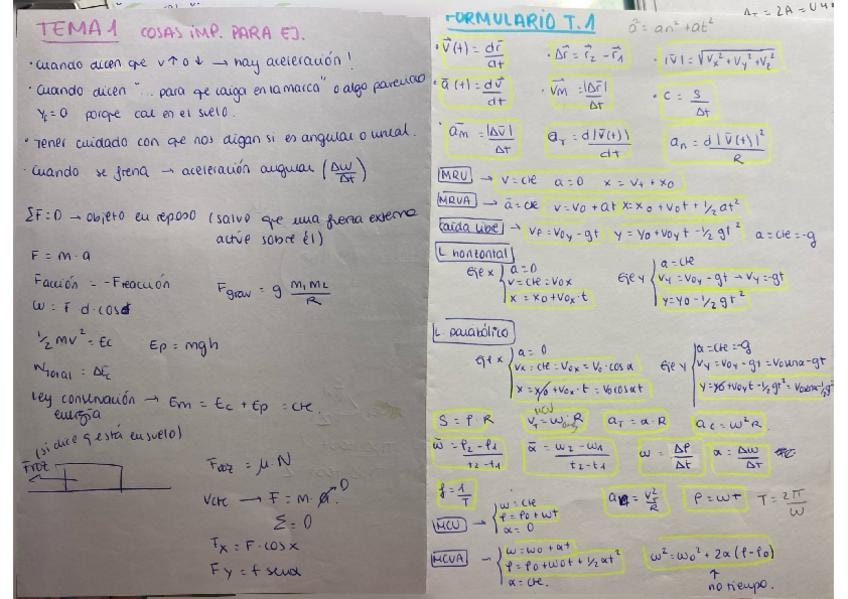 TEMA 1 COSAS IMP. PARA EJ.
· Cuando dicen que v↑ o ↓ → hay aceleración!
· Cuando dicen "... para que caiga en la marca" o algo parecido
Yf = 0 porque cae en el suelo.
· Tener cuidado con que nos digan si es angular o lineal.
· Cuando se frena → aceleración angular (Δω/Δt)
ΣF = 0 → objeto en reposo (salvo que una fuerza externa
actúe sobre él)
F = m · a
Facción = -Freacción
Fgrav = g m1 m2 / R
W = F d · cosα
1/2 mv² = Ec Ep = mgh
Wtotal = ΔEc
Ley conservación → Em = Ec + Ep = cte.
energía
(si dice q está en suelo)
Froz
Froz = μ · N
vcte → F = m · a 0
Σ = 0
Fx = F · cos x
Fy = f senα
ΔT = 2A =
FORMULARIO T.1 a⃗ = an² + at²
· v⃗(t) = dr⃗/dt · Δr⃗ = r⃗2 - r⃗1 · |v⃗| = √(vx² + vy² + vz²)
· a⃗(t) = dv⃗/dt · v⃗m = |Δr⃗|/Δt · c = s/Δt
· a⃗m = |Δv⃗|/Δt aT = d|v⃗(t)|/dt an = d|v⃗(t)|²/R
MRU → v = cte a = 0 x = vt + x0
MRUA → a⃗ = cte v = v0 + at x = x0 + v0t + 1/2 at²
Caída libre → vf = v0y - gt y = y0 + v0yt - 1/2 gt² a = cte = -g
L horizontal
Eje x a = 0
v = cte = v0x
x = x0 + v0x · t
Eje y a = cte
vy = v0y - gt → vy = -gt
y = y0 - 1/2 gt²
L. parabólico
Eje x a = 0
vx = cte = v0x = v0 · cosα
x = x0 + v0x · t = v0cosαt
Eje y a = cte = -g
vy = v0y - gt = v0senα - gt
y = y0 + v0yt - 1/2 gt² = v0senα - 1/2 g t²
S = φ · R MCU vT = ω · R aT = α · R ac = ω² R.
ω̄ = φ2 - φ1 / t2 - t1 ᾱ = ω2 - ω1 / t2 - t1 ω = Δφ/Δt α = Δω/Δt
f = 1/T
MCU → ω = cte
φ = φ0 + ωt
α = 0
ac = v²/R φ = ωt T = 2π/ω
MCUA → ω = ω0 + αt
φ = φ0 + ω0t + 1/2 αt²
α = cte.
ω² = ω0² + 2α(φ - φ0)
↑
no tiempo.